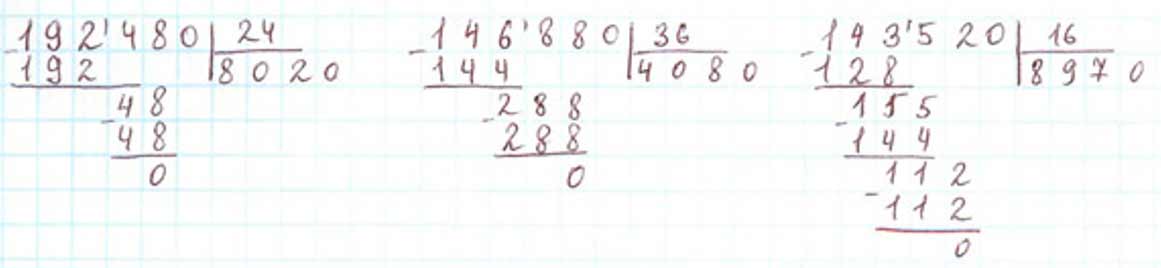 192'480 24
192 8020
48
48
0
146'880 36
144 4080
288
288
0
143'520 16
128 8970
155
144
112
112
0